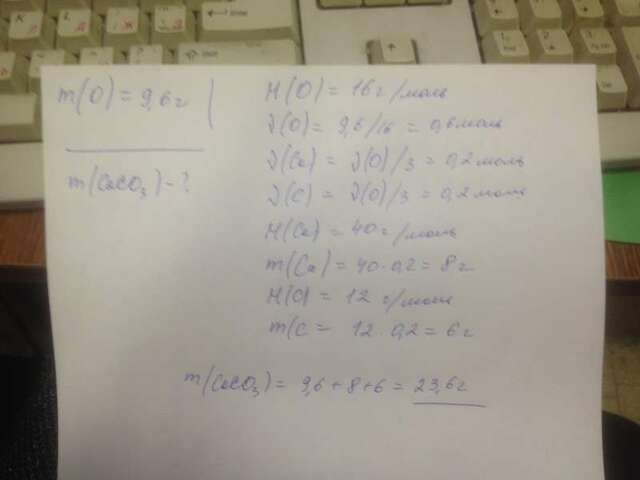 m(O) = 9,6г
m(CaCO₃) - ?
M(O) = 16г/моль
ν(O) = 9,6/16 = 0,6моль
ν(Ca) = ν(O)/3 = 0,2моль
ν(C) = ν(O)/3 = 0,2моль
M(Ca) = 40г/моль
m(Ca) = 40·0,2 = 8г
M(O) = 12 г/моль
m(C = 12·0,2 = 6г
m(CaCO₃) = 9,6+8+6 = 23,6г
Enter
Shift